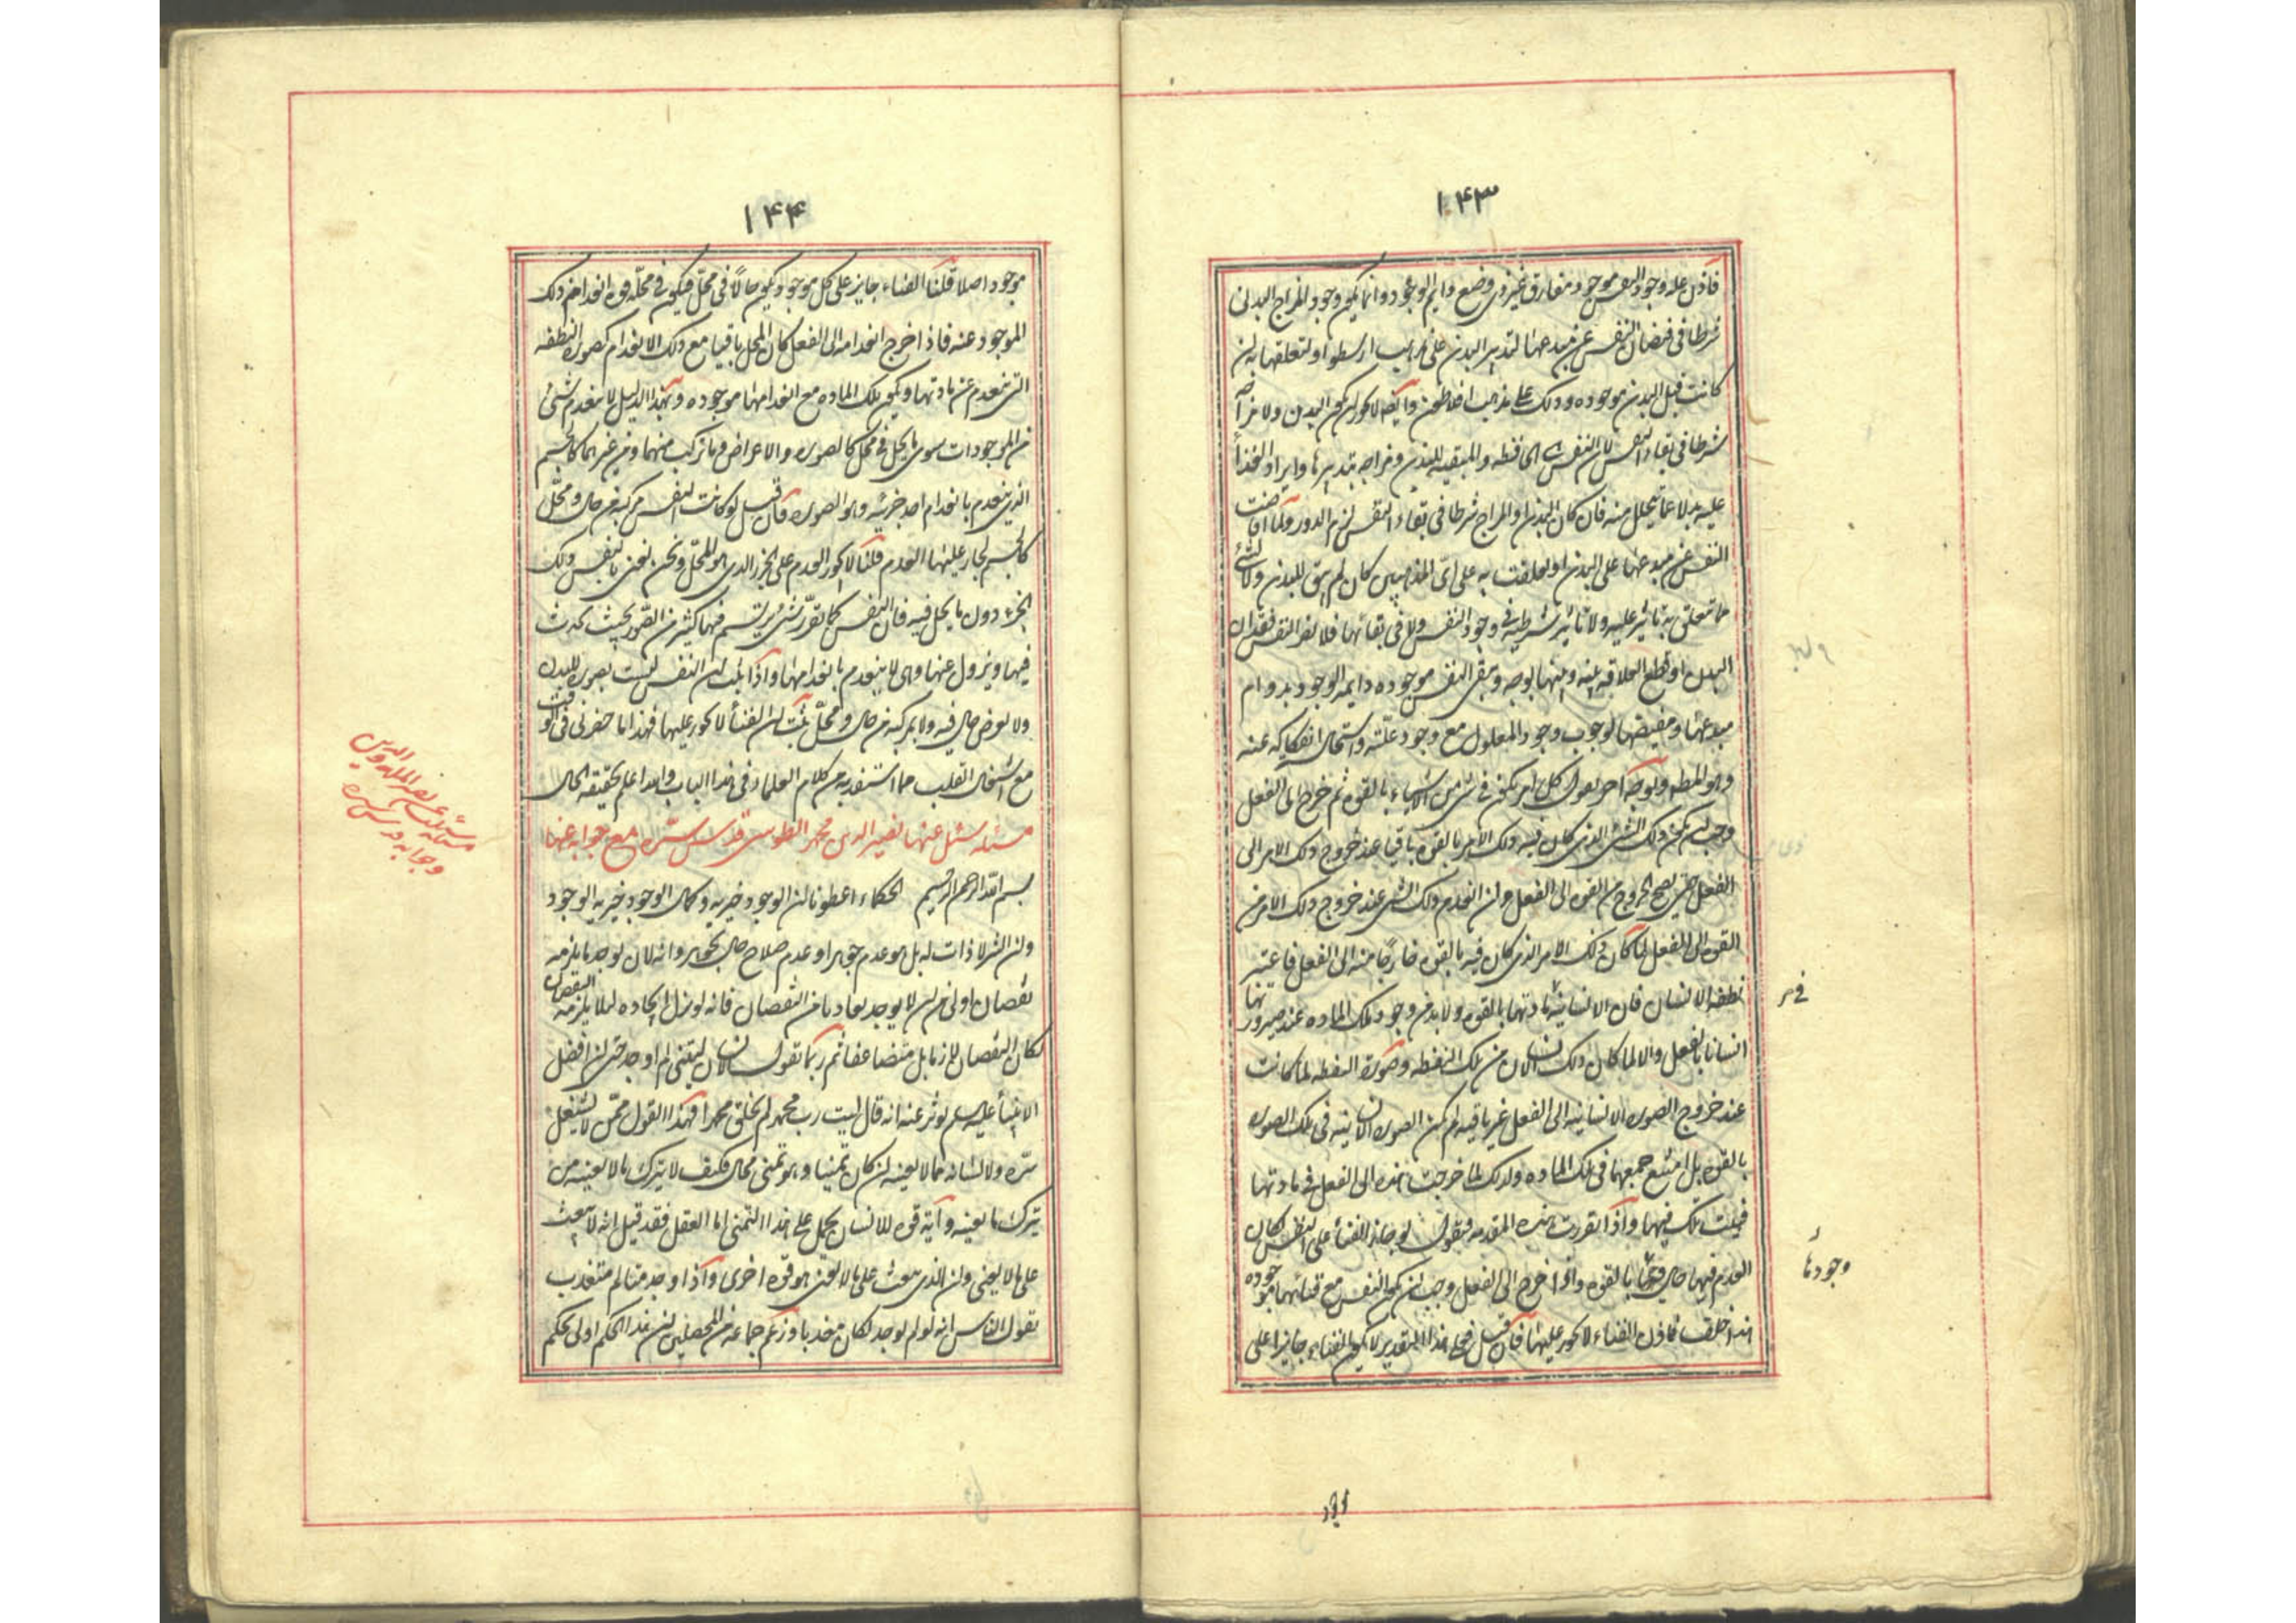 ١۴٣
فاذن علة وجود النفس موجود مفارق غير ذي وضع دايم الوجود وانما يكون وجود المزاج البدني
شرطا في فيضان النفس عن مبدعها لتدبير البدن على مذهب ارسطو او لتعلقها به لن
كانت قبل البدن موجوده وذلك على مذهب افلاطون وايضا لا يجوز لن يكون البدن ولا مزاجه
شرطا في بقاء النفس لان النفس هي الحافظه والمبقيه للبدن ومزاجه بتدبيرها وايراد الغذاء
عليه بدلا عما يتحلل منه فان كان البدن او المزاج شرطا في بقاء النفس لزم الدور ولما افاضت
النفس عن مبدعها على البدن او تعلقت به على اي المذهبين كان لم يبق للبدن ولا لشئ
مما تعلق به تاثير علية ولا تاثير شرطية في وجود النفس ولا في بقائها فلا يضر النفس فقدان
البدن او قطع العلاقه بينه وبينها بوجه وتبقى النفس موجوده دايمة الوجود بدوام
مبدعها ومفيضها لوجوب وجود المعلول مع وجود علته واستحالة انفكاكه عنه
وهو المط وبوجه آخر نقول كل امر يكون في شئ من الاشياء بالقوه ثم خرج الى الفعل
وجب لن يكون ذلك الشئ الذي كان فيه ذلك الامر بالقوه باقيا عند خروج ذلك الامر الى
الفعل حتى يصح الخروج من القوه الى الفعل ولن انعدم ذلك الشئ عند خروج ذلك الامر من
القوه الى الفعل لما كان ذلك الامر الذي كان فيه بالقوه خارجا منه الى الفعل فاعتبر
نطفة الانسان فان الانسانية في مادتها بالقوه ولا بد من وجود تلك الماده عند صيرورتها
انسانا بالفعل والا لما كان ذلك الانسان من تلك النطفه وصورة النطفه لما كانت
عند خروج الصورة الانسانيه الى الفعل غير باقيه لم تكن الصورة الانسانية في تلك الصوره
بالقوه بل امتنع جمعهما في تلك الماده ولذلك لما خرجت هذه الى الفعل في مادتها
فنيت تلك فيها واذا تقررت هذه المقدمه فنقول لو جاز الفناء على النفس لكان
العدم فيها حال وجودها بالقوه واذا خرج الى الفعل وجب لن تكون النفس مع فنائها موجوده
هذا خلف فاذن الفناء لا يجوز عليها فان قيل فعلى هذا التقدير لا يكون الفناء جايزا على
في
وجودها
١۴۴
موجود اصلا قلنا الفناء جايز على كل موجود يكون حالا في محل فيكون في محله قوة انعدام ذلك
الموجود عنه فاذا خرج انعدامه الى الفعل كان المحل باقيا مع ذلك الانعدام كصورة النطفه
التي ينعدم عن مادتها ويكون تلك الماده مع انعدامها موجوده وبهذا الدليل لا ينعدم شئ
من الموجودات سوى ما يحل في محل كالصوره والاعراض وما تركب منهما ومن غيرهما كالجسم
الذي ينعدم بانعدام احد جزئيه وهو الصوره فان قيل لو كانت النفس مركبة من حال ومحل
كالجسم لجاز عليها العدم قلنا لا يجوز العدم على الجزء الذي هو المحل ونحن نعني بالنفس ذلك
الجزء دون ما يحل فيه فان النفس كما تقرر شئ يرتسم فيها كثير من الصور بحيث يحدث
فيها ويزول عنها وهي لا ينعدم بانعدامها واذا ثبت لن النفس ليست بصورة للبدن
ولا بعرض حال فيه ولا بمركبة من حال ومحل ثبت لن الفناء لا يجوز عليها فهذا ما حضرني في الوقت
مع اشتغال القلب مما استفدته من كلام العلماء في هذا الباب والله اعلم بحقيقة الحال
مسئله سئل عنها نصير الدين محمد الطوسي قدس سره مع جوابه عنها
بسم الله الرحمن الرحيم الحكماء اعطونا لن الوجود خيريه وكمال الوجود خيرية الوجود
ولن الشر لا ذات له بل هو عدم جوهر او عدم صلاح حال لجوهر وانه لان يوجد ما يلزمه
نقصان اولى من لن لا يوجد تفاديا من النقصان فانه لو ترك ايجاده لئلا يلزمه النقصان
لكان النقصان لازما بل متضاعفا ثم ربما تقول الانسان ليتني لم اوجد حتى لن افضل
الانبياء عليه السلم يوثر عنه انه قال ليت رب محمد لم يخلق محمدا فهذا القول ممن لا يشغل
سره ولا لسانه بما لا يعنيه لن كان تمنيا وهو تمني محال فكيف لا يترك ما لا يعنيه من
يترك ما يعنيه وآية قوه للانسان يحمل على هذا التمني اما العقل فقد قيل انه لا يبعث
على ما لا يعني ولن الذي يبعث على ما لا يعني هو قوة اخرى واذا وجد متالم متعذب
تقول الناس انه لو لم يوجد لكان خيرا وزعم جماعه من المحصلين لن هذا الحكم اولى بحكم